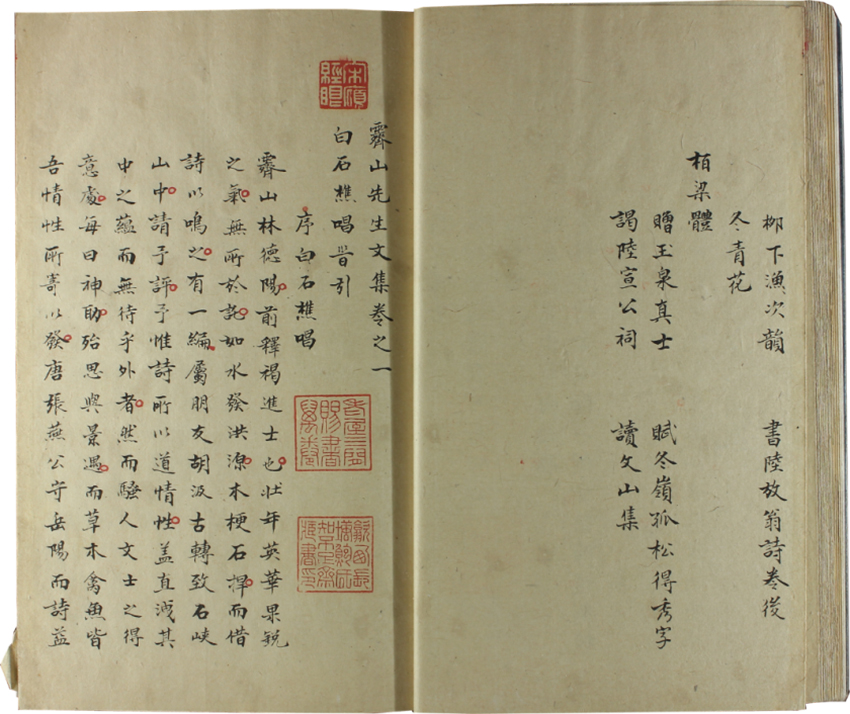 柳下漁次韻　書陸放翁詩卷後
冬青花
栢梁體
贈玉泉真士　賦冬嶺孤松得秀字
謁陸宣公祠　讀文山集
霽山先生文集卷之一
白石樵唱晉引
序白石樵唱
霽山林德陽前釋褐進士也壯年英華果銳
之氣無所於託如水發洪源木梗石撑而借
詩以鳴之有一編屬朋友胡汲古轉致石峡
山中請予評予惟詩所以道情性盖直泻其
中之蘊而無待乎外者然而騷人文士之得
意處每曰神助殆思與景遇而草木禽魚皆
吾情性所寄以發唐張燕公守岳陽而詩益